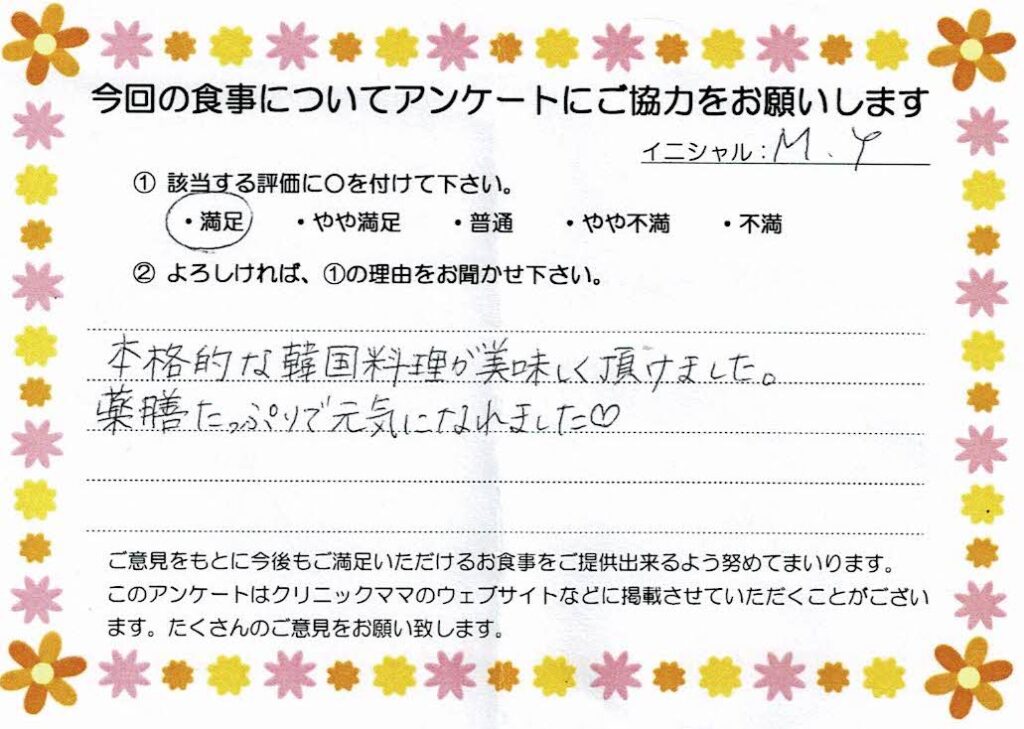 今回の食事についてアンケートにご協力をお願いします
イニシャル：M.Y
① 該当する評価に○を付けて下さい。
・満足 ・やや満足 ・普通 ・やや不満 ・不満
② よろしければ、①の理由をお聞かせ下さい。
本格的な韓国料理が美味しく頂けました。
薬膳たっぷりで元気になれました♡
ご意見をもとに今後もご満足いただけるお食事をご提供出来るよう努めてまいります。
このアンケートはクリニックママのウェブサイトなどに掲載させていただくことがござい
ます。たくさんのご意見をお願い致します。